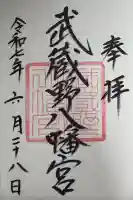 奉拝
武蔵野八幡宮
令和七年六月二十八日